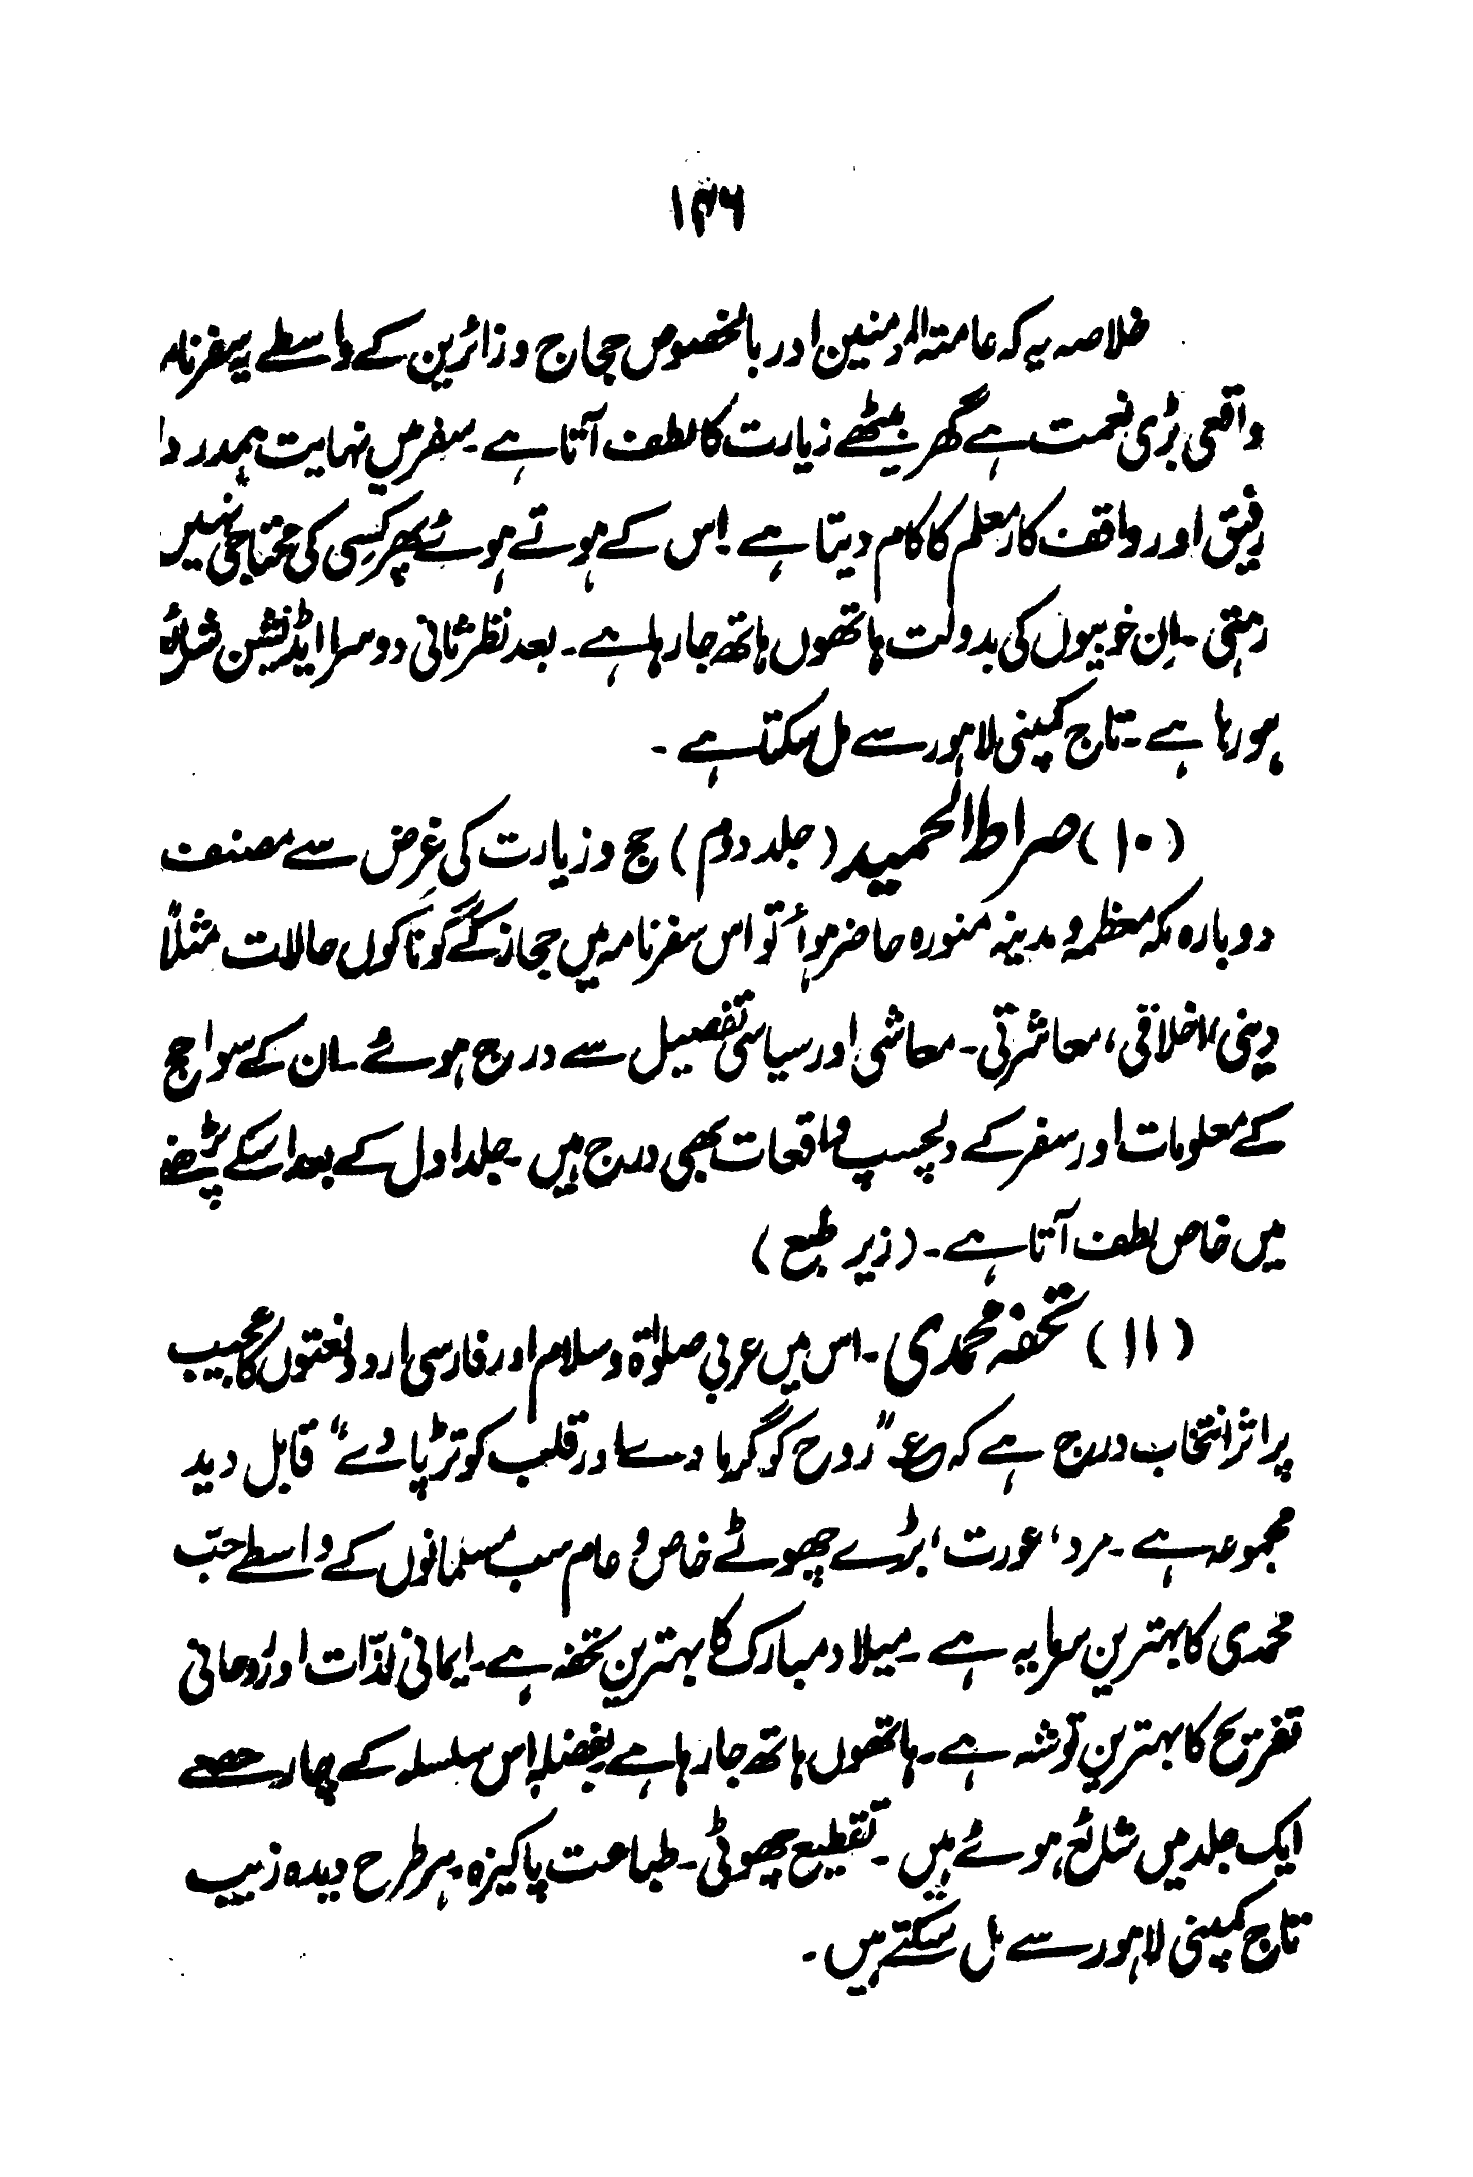 ۱۴۶
خلاصہ یہ کہ عامتہ المومنین اور بالخصوص حجاج و زائرین کے واسطے یہ سفرنامہ
واقعی بڑی نعمت ہے گھر بیٹھے زیارت کا لطف آتا ہے۔ سفر میں نہایت ہمدرد
رفیق اور واقف کار معلم کا کام دیتا ہے۔ اس کے ہوتے ہوئے پھر کسی کی محتاجی نہیں
رہتی۔ اِن خوبیوں کی بدولت ہاتھوں ہاتھ جا رہا ہے۔ بعد نظر ثانی دوسرا ایڈیشن شائع
ہو رہا ہے۔ تاج کمپنی لاہور سے مل سکتا ہے۔
(۱۰) صراط الحمید (جلد دوم) حج و زیارت کی غرض سے مصنف
دوبارہ مکہ معظمہ و مدینہ منورہ حاضر ہوا تو اس سفرنامہ میں حجاز کے گوناگوں حالات مثلاً
دینی، اخلاقی، معاشرتی۔ معاشی اور سیاسی تفصیل سے درج ہوئے۔ ان کے سوا حج
کے معلومات اور سفر کے دلچسپ واقعات بھی درج ہیں۔ جلد اول کے بعد اسکے پڑھنے
میں خاص لطف آتا ہے۔ (زیر طبع)
(۱۱) تحفہ محمدی۔ اس میں عربی صلوٰۃ و سلام اور فارسی اردو نعتوں کا عجیب
پر اثر انتخاب درج ہے کہ ع "روح کو گرما دے اور قلب کو تڑپا دے" قابل دید
مجموعہ ہے۔ مرد، عورت، بڑے چھوٹے خاص و عام سب مسلمانوں کے واسطے حبّ
محمدی کا بہترین سرمایہ ہے۔ میلاد مبارک کا بہترین تحفہ ہے۔ ایمانی لذّات اور رُوحانی
تفریح کا بہترین توشہ ہے۔ ہاتھوں ہاتھ جا رہا ہے بفضلہٖ اس سلسلہ کے چار حصے
ایک جلد میں شائع ہوئے ہیں۔ تقطیع چھوٹی۔ طباعت پاکیزہ۔ ہر طرح دیدہ زیب
تاج کمپنی لاہور سے مل سکتے ہیں۔